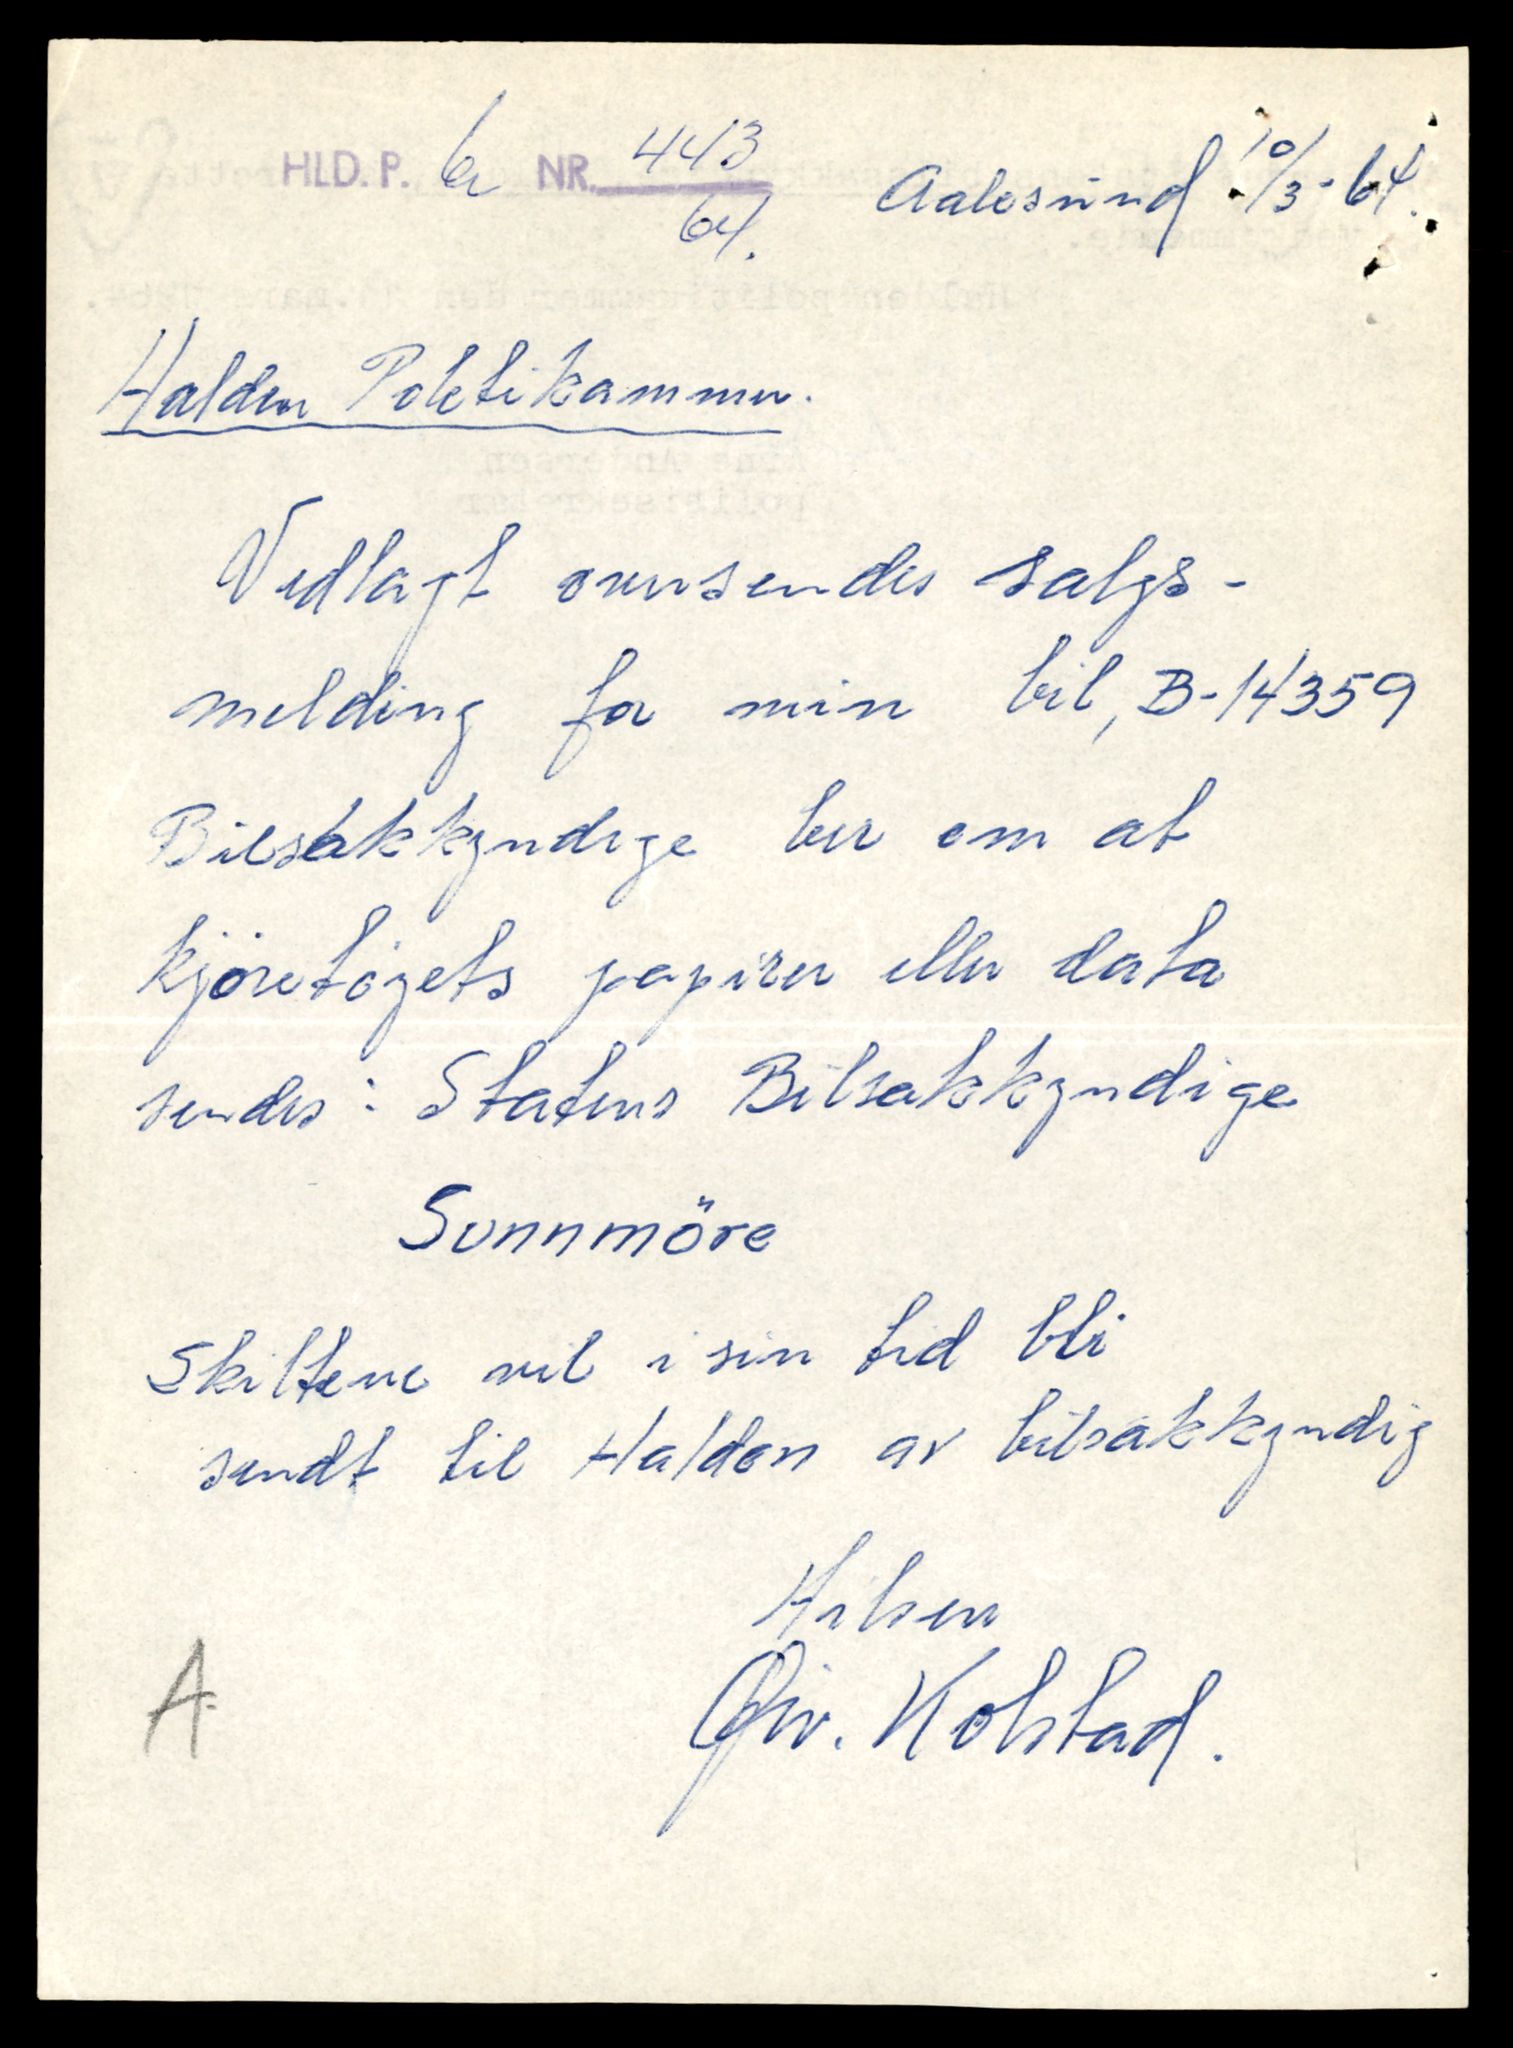 HLD. P. b NR. 443
64.
Aalesund 10/3-64.
Halden Politikammer.
Vedlagt oversendes salgs-
melding for min bil, B-14359
Bilsakkyndige ber om at
kjöretöyets papirer eller data
sendes: Statens Bilsakkyndige
Sunnmöre
Skiltene vil i sin tid bli
sendt til Halden av bilsakkyndig
Hilsen
Kolstad.
A